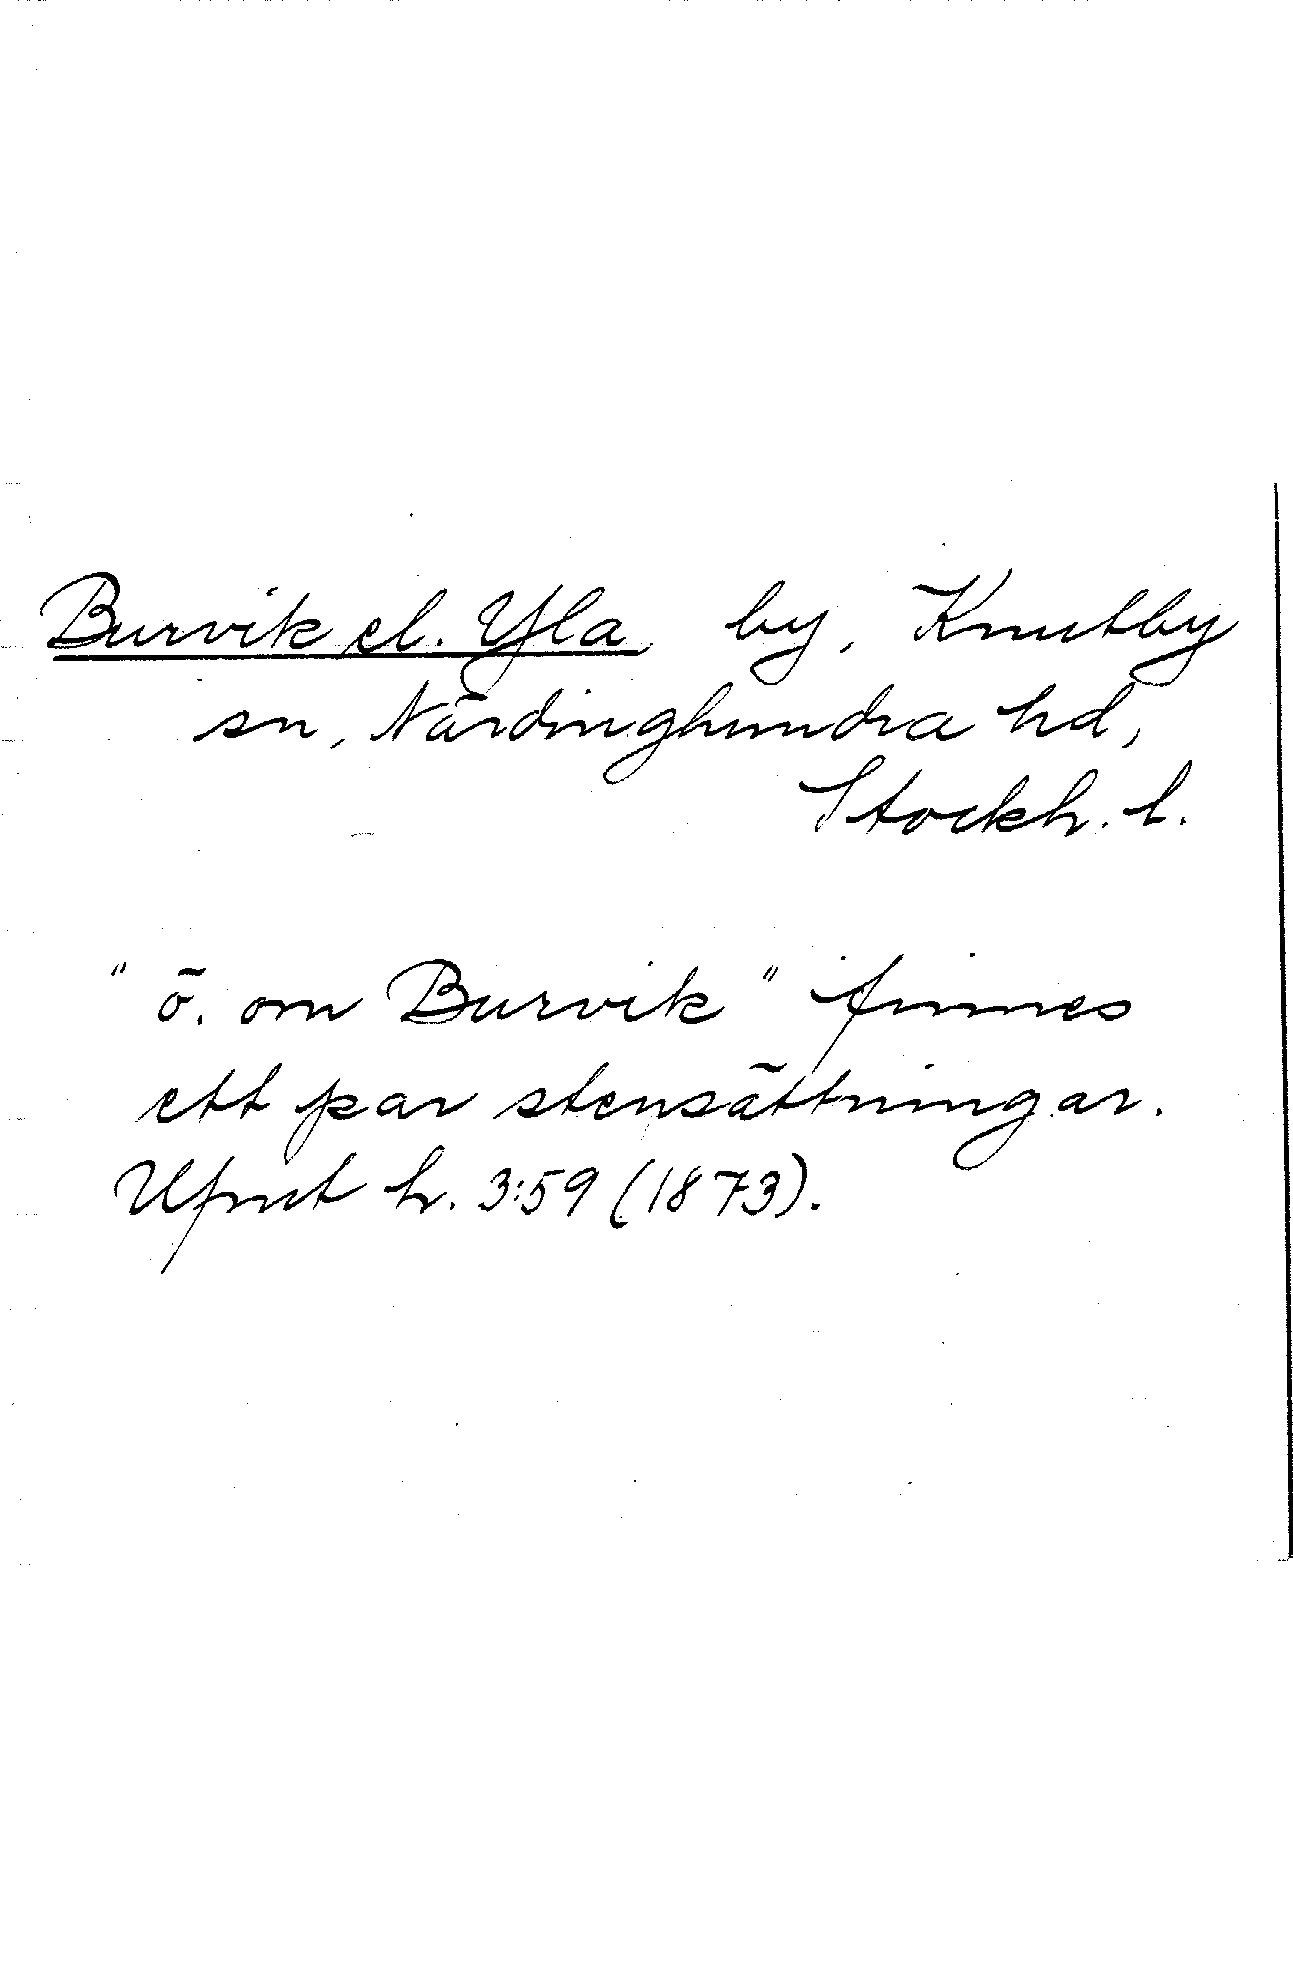 Burvik el. Yla, by, Knutby
sn, Närdinghundra hd,
Stockh. l.
"ö. om Burvik" finnes
ett par stensättningar.
Ufmt h. 3:59 (1873).